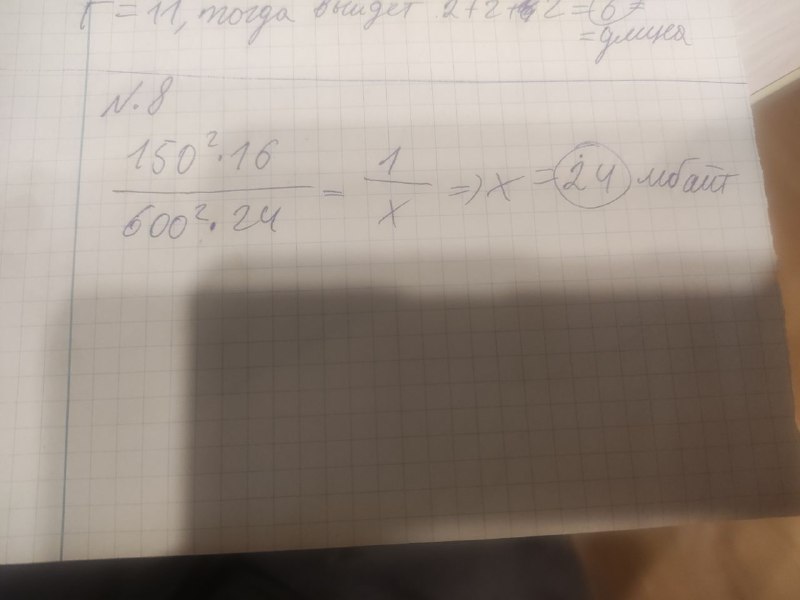 Г = 11, тогда выйдет 2+2+2 = 6 =
= длина
N. 8
150²·16 / 600²·24 = 1 / x => x = 24 мбайт